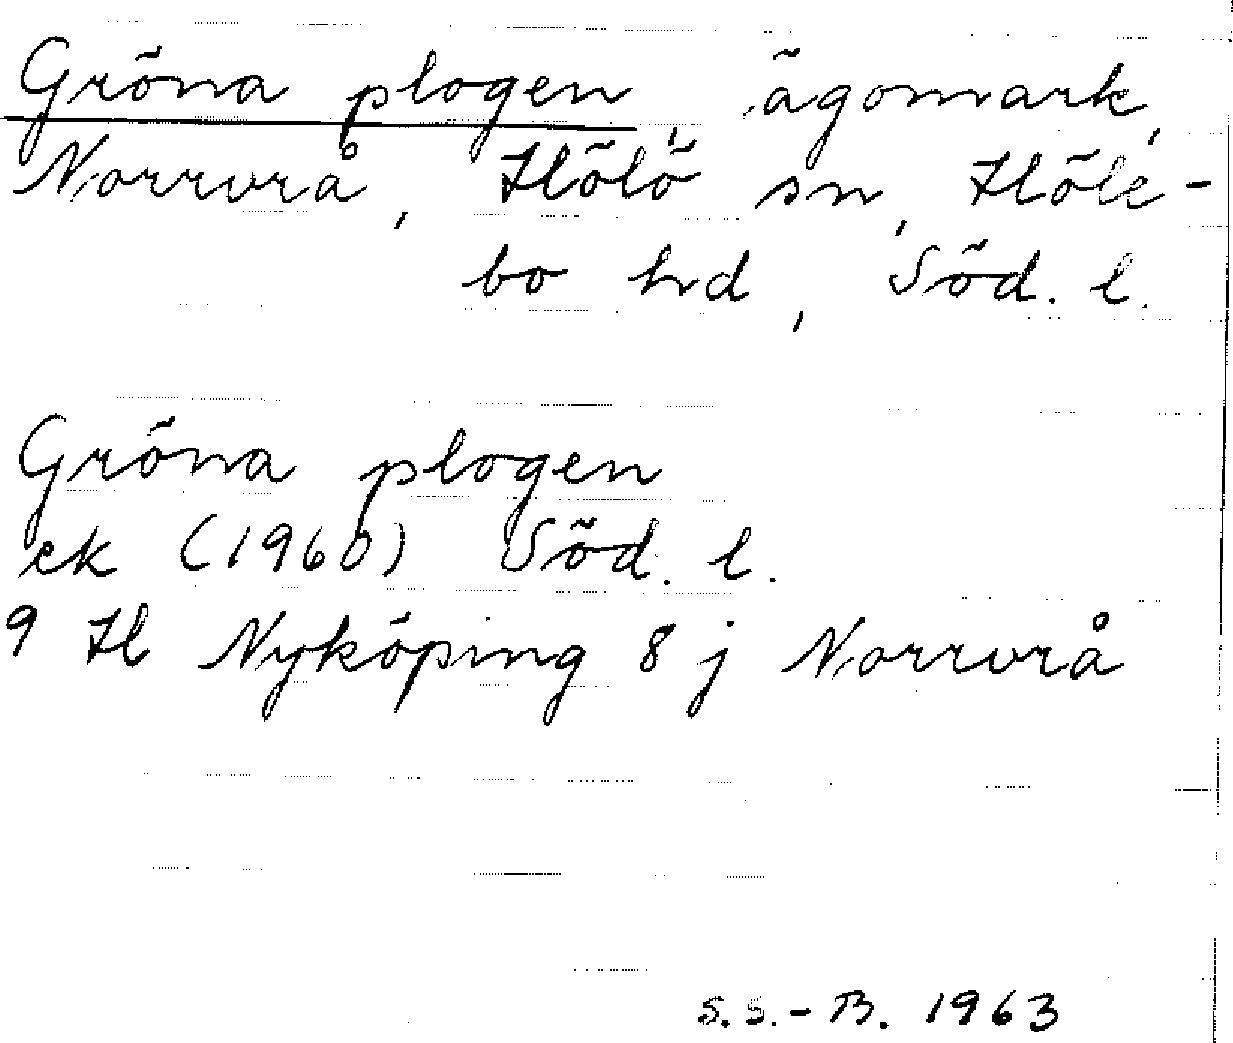 Gröna plogen, ägomark,
Norrvrå, Hölö sn, Höle-
bo hd, Söd. l.
Gröna plogen
ek (1960) Söd. l.
9 H l Nyköping 8 j Norrvrå
S.S.-B. 1963